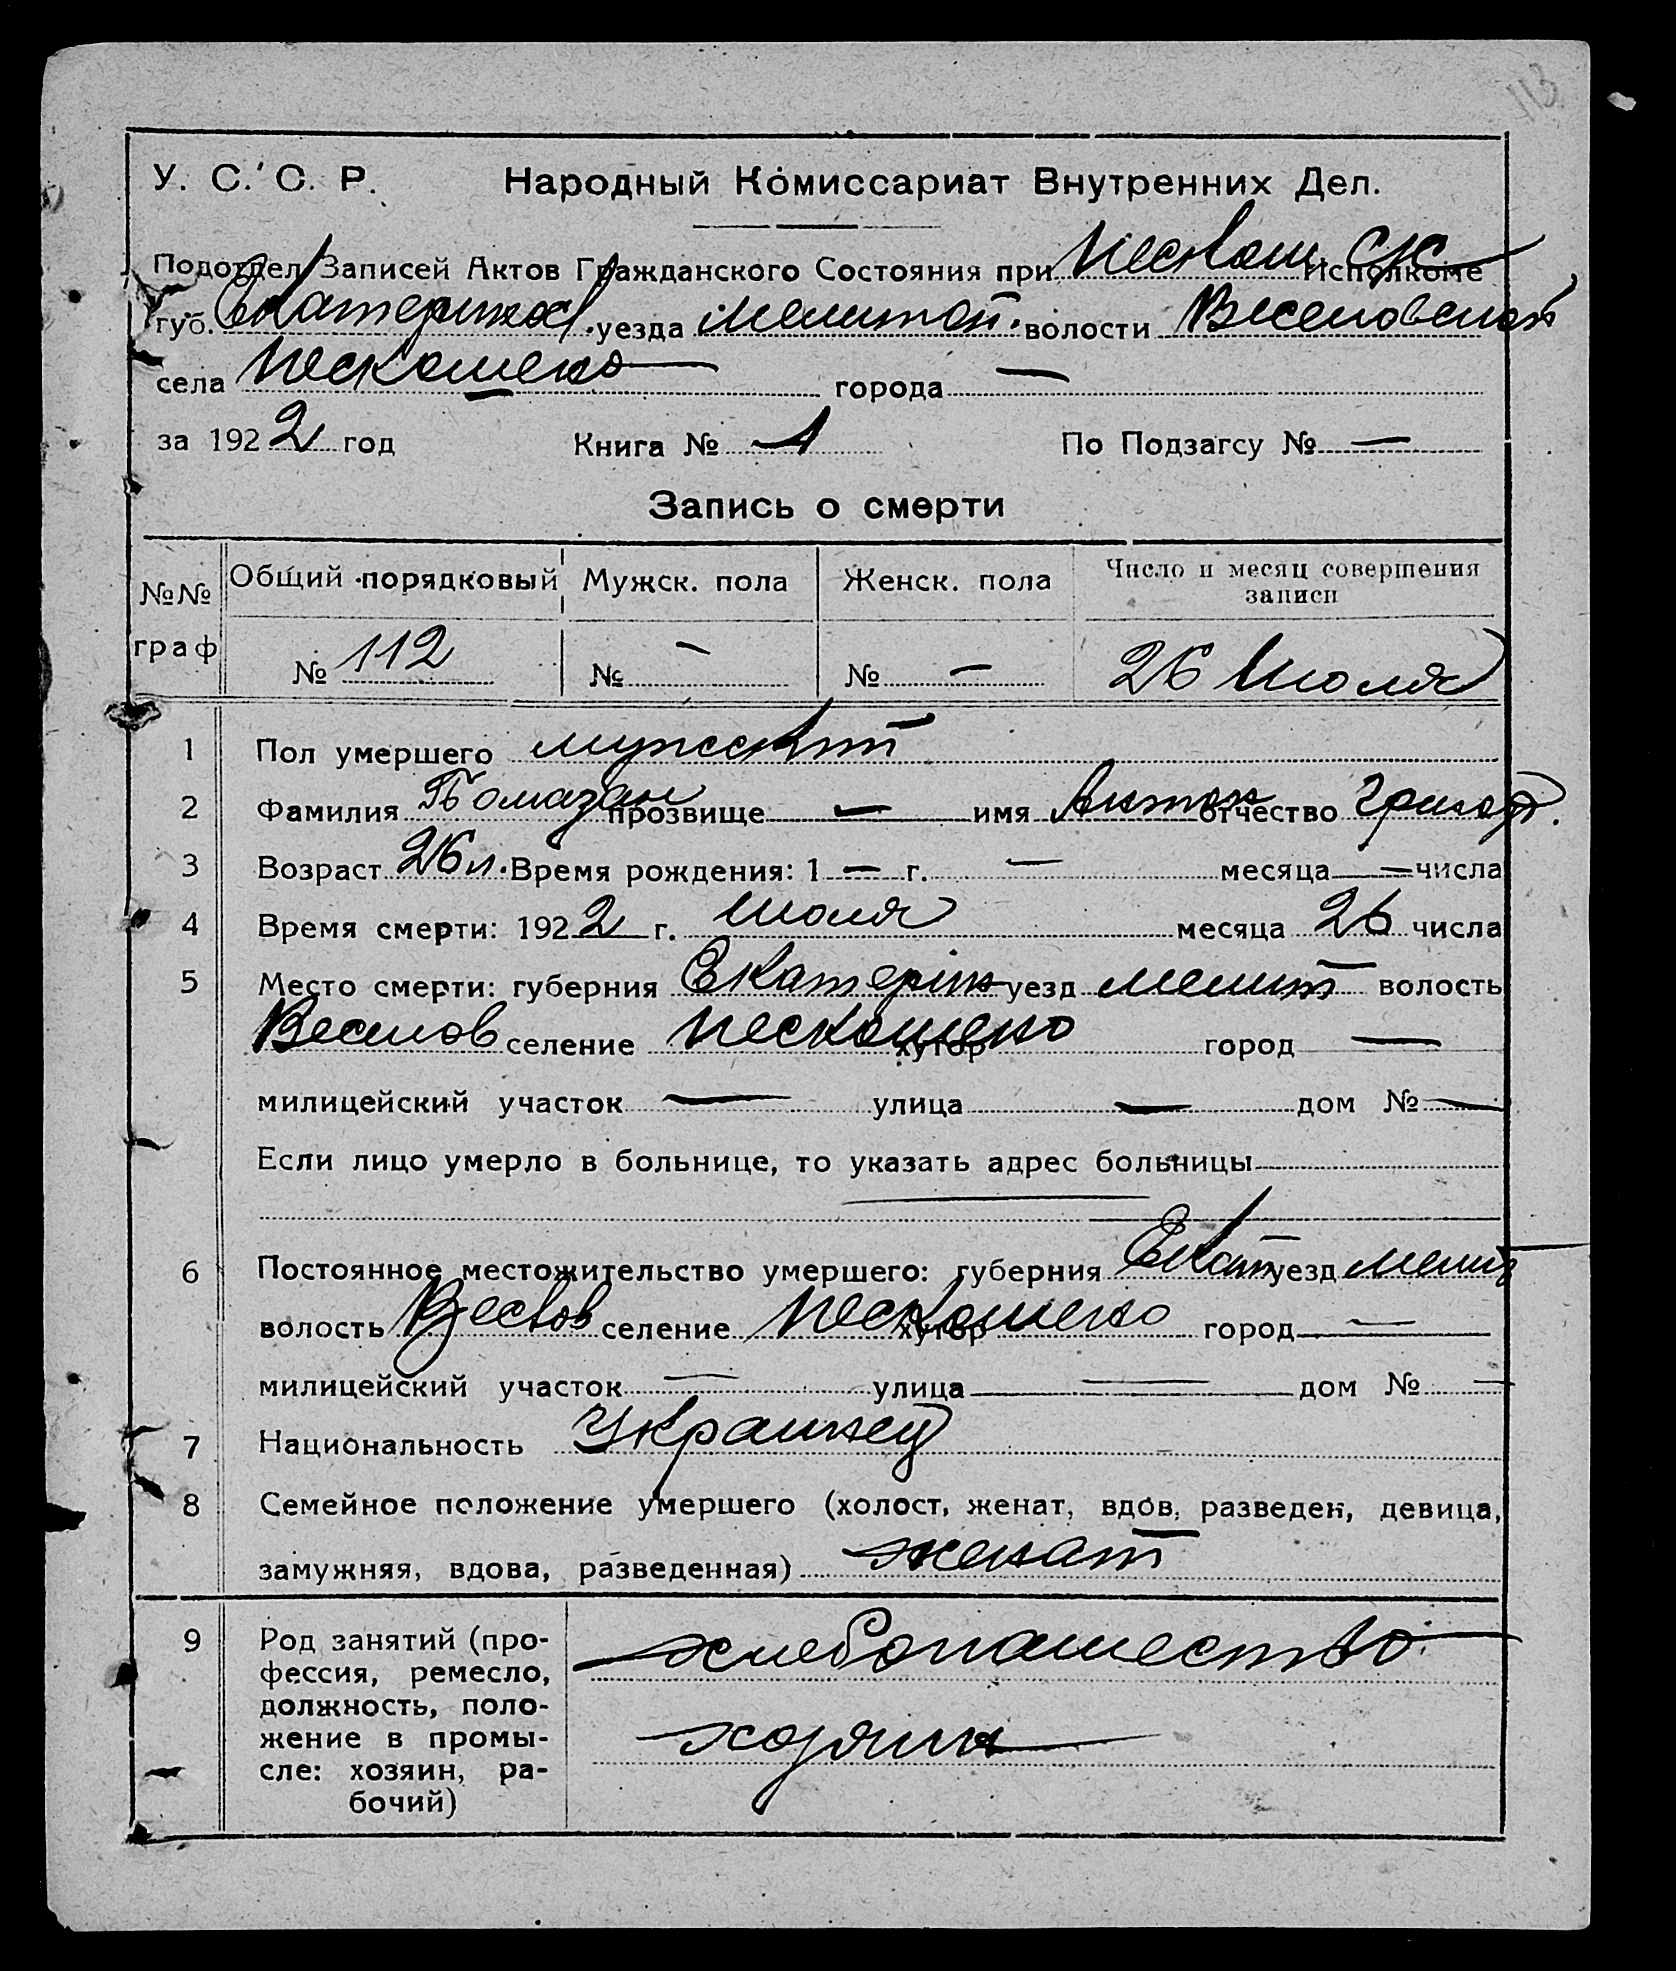 113
У. С. С. Р. Народный Комиссариат Внутренних Дел.
Подотдел Записей Актов Гражданского Состояния при Нескош. с/с Исполкоме
губ. Екатеринос. уезда Мелитоп. волости Веселовской
села Нескошено города —
за 1922 год Книга № 1 По Подзагсу № —
Запись о смерти
№№ граф Общий порядковый Мужск. пола Женск. пола Число и месяц совершения записи
№ 112 № — № — 26 Июля
1 Пол умершего мужской
2 Фамилия Помазан прозвище — имя Антон отчество Григор.
3 Возраст 26 л. Время рождения: 1 — г. — месяца — числа
4 Время смерти: 1922 г. Июля месяца 26 числа
5 Место смерти: губерния Екатерин уезд Мелит волость
Веселов селение Нескошено хутор город —
милицейский участок — улица — дом № —
Если лицо умерло в больнице, то указать адрес больницы
6 Постоянное местожительство умершего: губерния Екат уезд Мелит
волость селение Нескошено хутор город —
милицейский участок — улица — дом № —
7 Национальность Украинец
8 Семейное положение умершего (холост, женат, вдов, разведен, девица,
замужняя, вдова, разведенная) женат
9 Род занятий (про-
фессия, ремесло,
должность, поло-
жение в промы-
сле: хозяин, ра-
бочий)
хлебопашество
хозяин